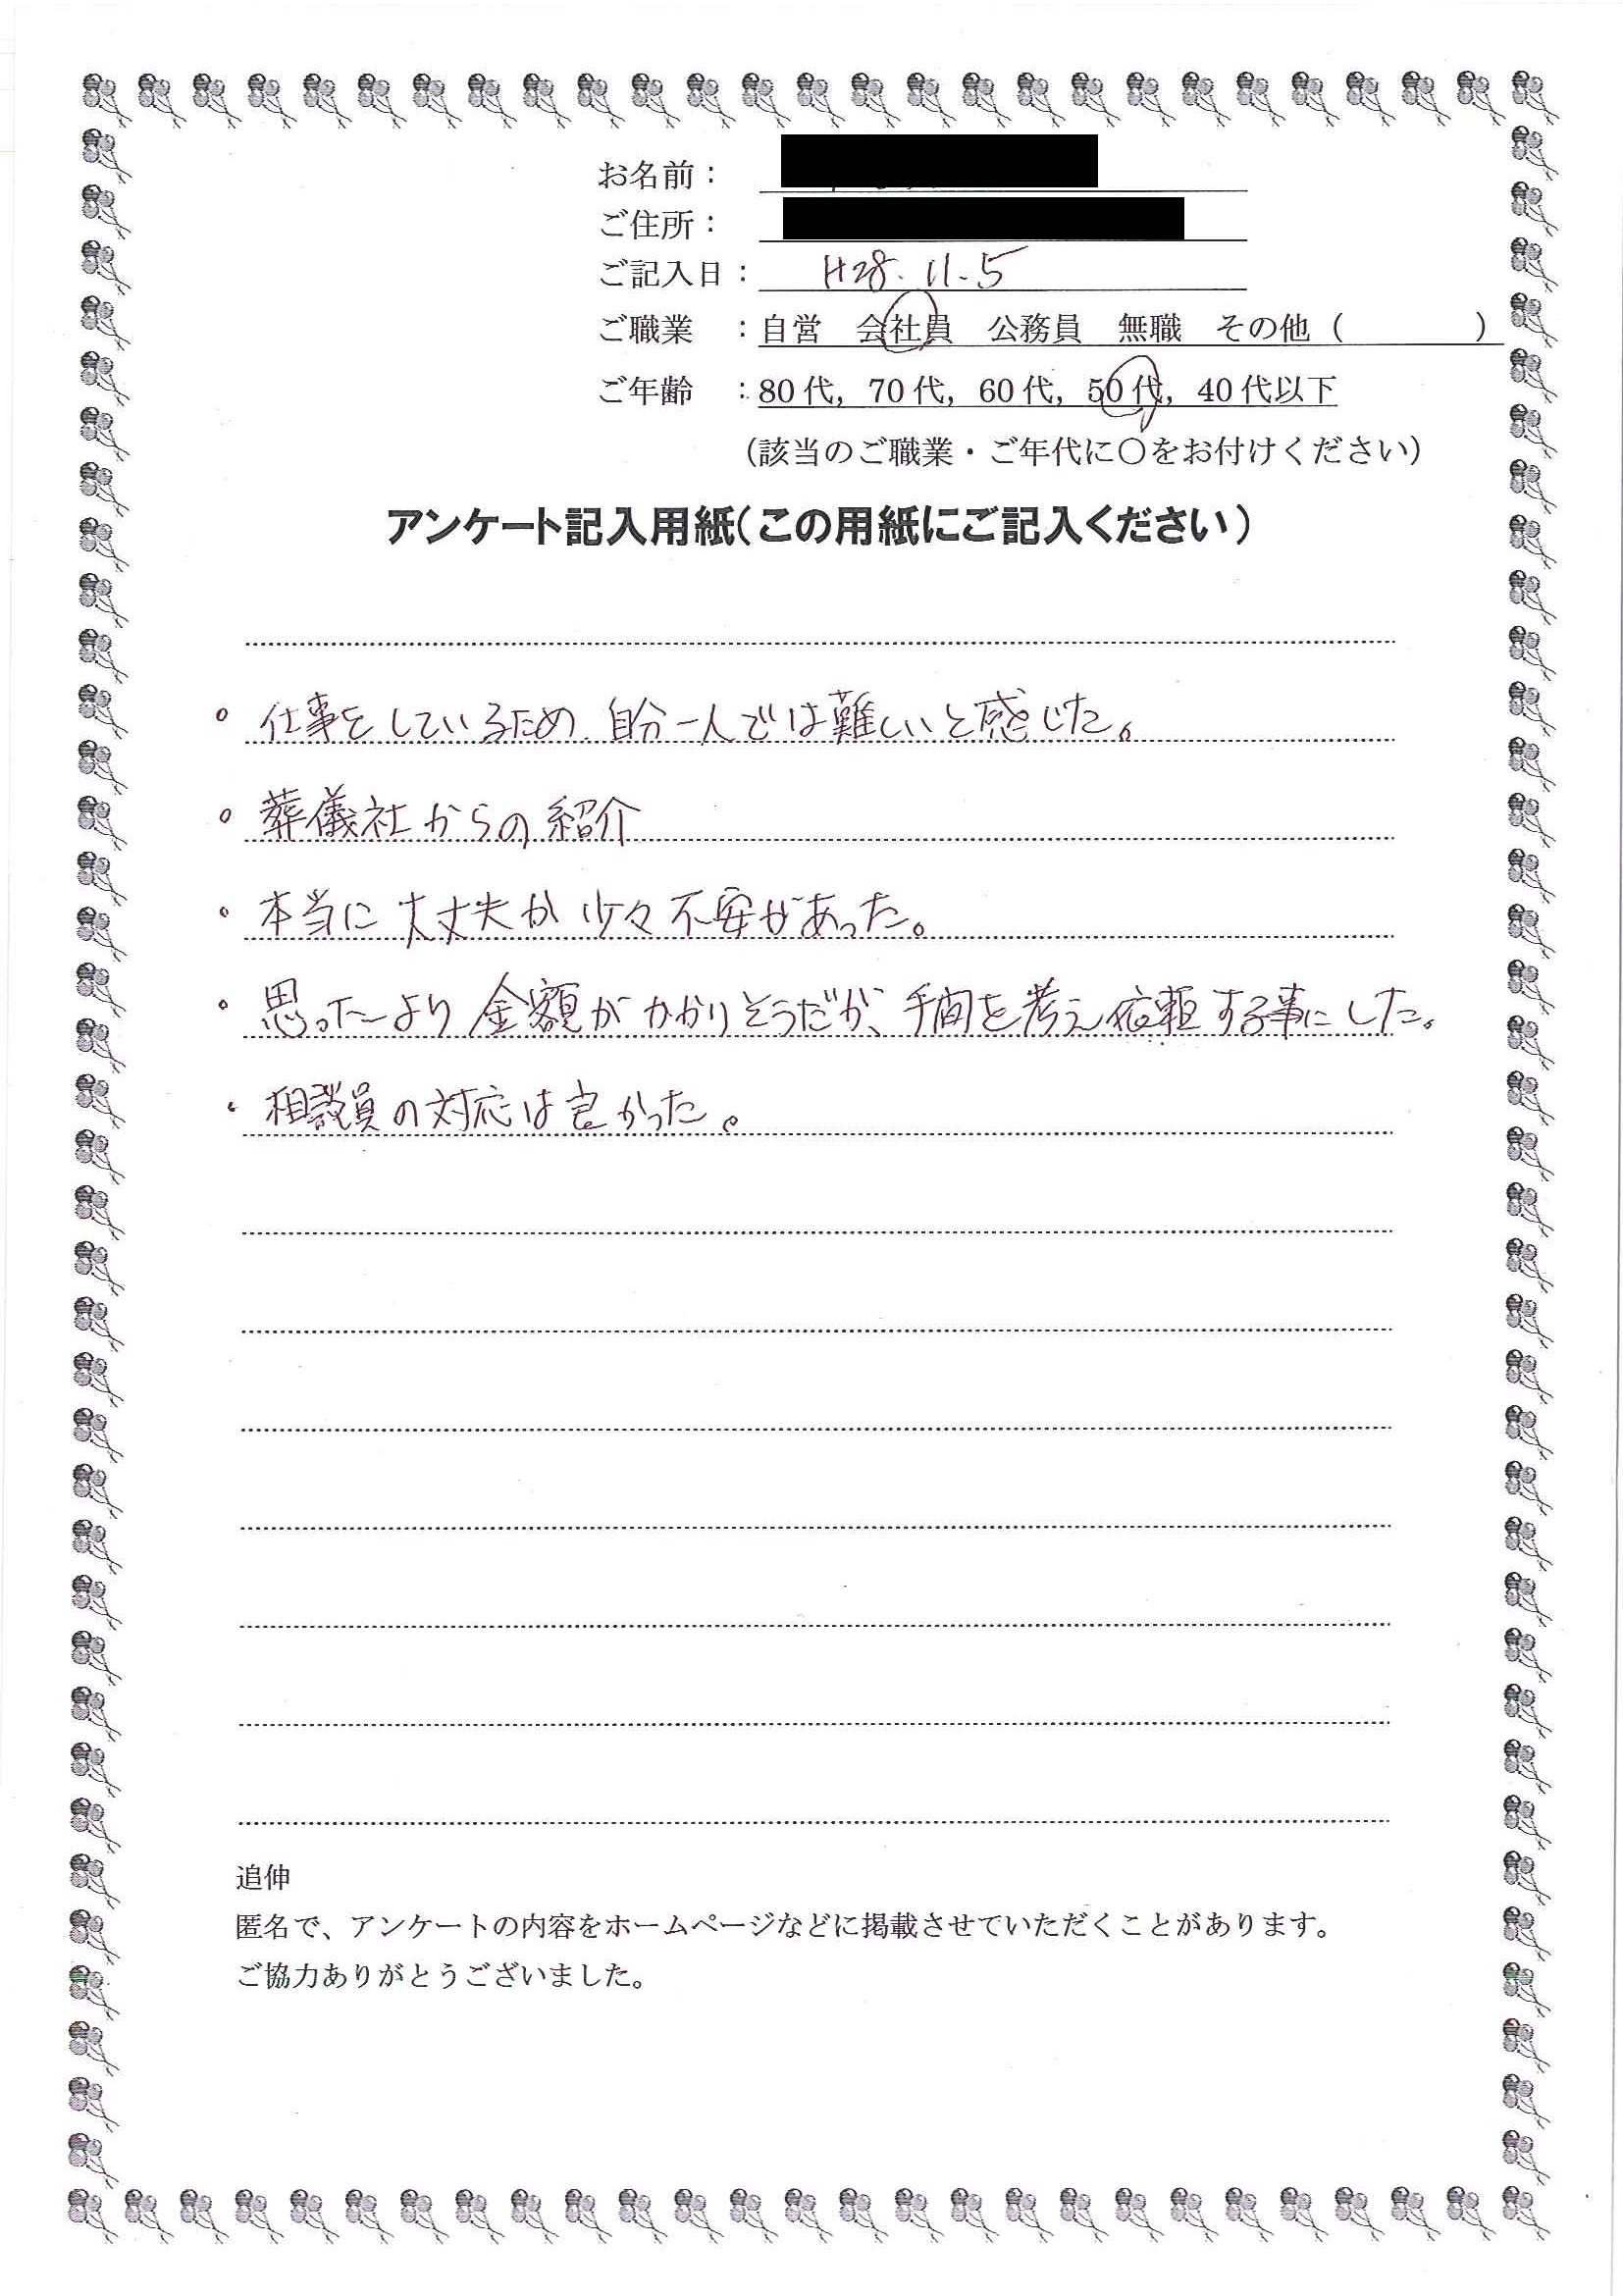 お名前：
ご住所：
ご記入日： H28.11.5
ご職業 ：自営 会社員 公務員 無職 その他（ ）
ご年齢 ：80代，70代，60代，50代，40代以下
（該当のご職業・ご年代に〇をお付けください）
アンケート記入用紙（この用紙にご記入ください）
。仕事をしているため、自分一人では難しいと感じた。
。葬儀社からの紹介
・本当に大丈夫か少々不安があった。
・思ったより金額がかかりそうだが、手間を考え依頼する事にした。
・相談員の対応は良かった。
追伸
匿名で、アンケートの内容をホームページなどに掲載させていただくことがあります。
ご協力ありがとうございました。